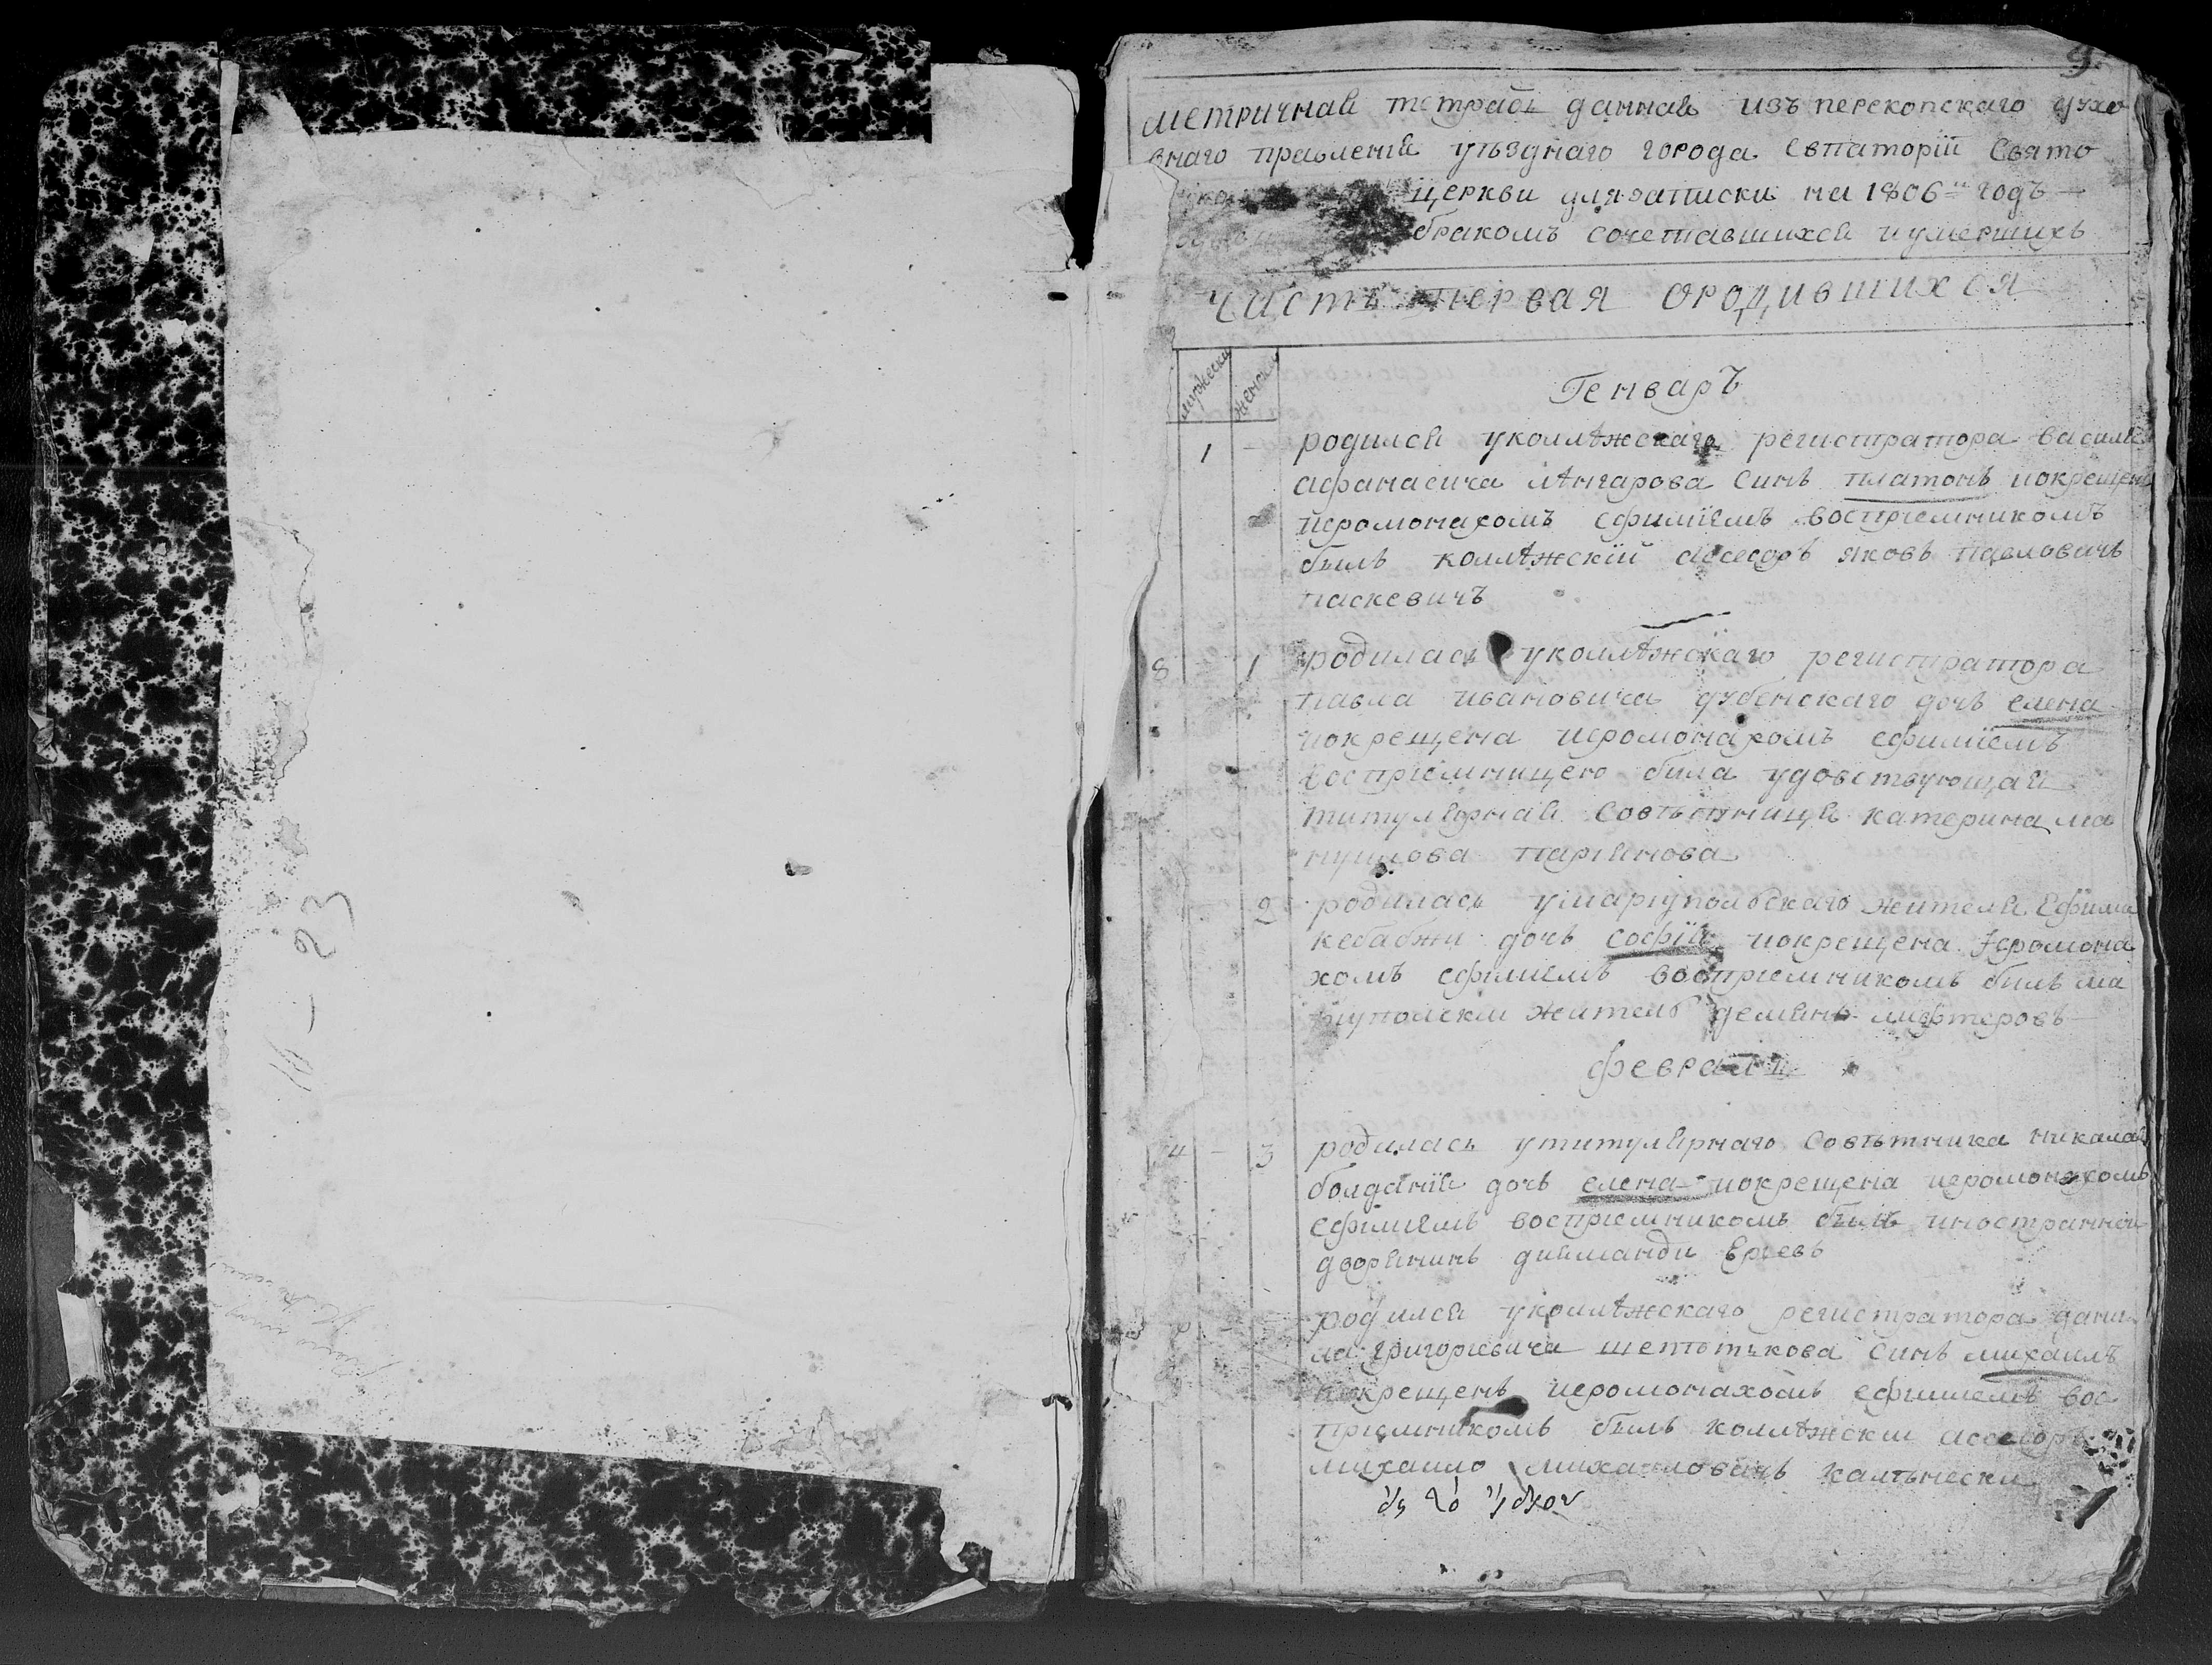 9.
метричная тетрадь данная изъ перекопскаго духо
внаго правленія уѣзднаго города Євпаторїи Свято
церкви для записки на 1806й годъ —
бракомъ сочетавшихся и умершихъ
часть первая ородившихся
мужеска женска
Генваръ
1 – родился уколлѣжскаго регистратора василія
афанасича лѣнгарова синъ платонъ иокрещенъ
іеромонахомъ ефиміемъ воспріемникомъ
былъ коллѣжскій ассесоръ яковъ павловичъ
паскевичъ
8 – 1 родилась уколлѣжскаго регистратора
павла ивановича дубенскаго дочъ елена
иокрещена иеромонахомъ ефимїемъ
воспріемницею била удовствующая
титулярная совѣтница катерина ма
нуилова
2 родилась умаріупольскаго жителя Ефима
кебабжи дочъ софїя иокрещена Іеромона
хомъ ефиміемъ воспріемникомъ билъ ма
ріуполски житель демянъ
февраля
4 – 3 родилась утитулярнаго совѣтника николая
дочъ елена иокрещена иеромонахомъ
ефиміемъ воспріемникомъ былъ иностранной
дворянинъ диаманди
родился уколлѣжскаго регистратора дани
ла григоріевича синъ михаилъ
иокрещенъ иеромонахомъ ефиміемъ вос
пріемникомъ былъ коллѣжски ассесоръ
михаило михаиловичъ
16 – 23